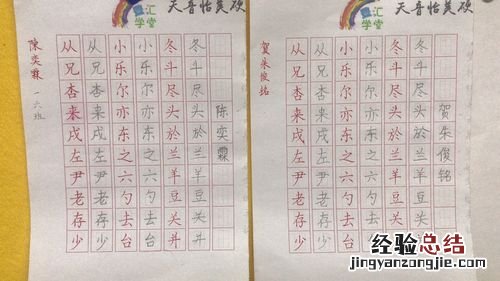 汇
学堂
天音怡美硬
陈奕霖 一六班
从兄杏来戌左尹老存少
从兄杏来戌左尹老存少
小乐尔亦东之六勺去台
小乐尔亦东之六勺去台
冬斗尽头於兰羊豆关并
冬斗尽头於兰羊豆关并
陈奕霖
汇
学堂
天音怡美硬
贺朱俊铭
从兄杏来戌左尹老存少
从兄杏来戌左尹老存少
小乐尔亦东之六勺去台
小乐尔亦东之六勺去台
冬斗尽头於兰羊豆关并
冬斗尽头於兰羊豆关并
贺朱俊铭
经验总结
jingyanzongjie.com